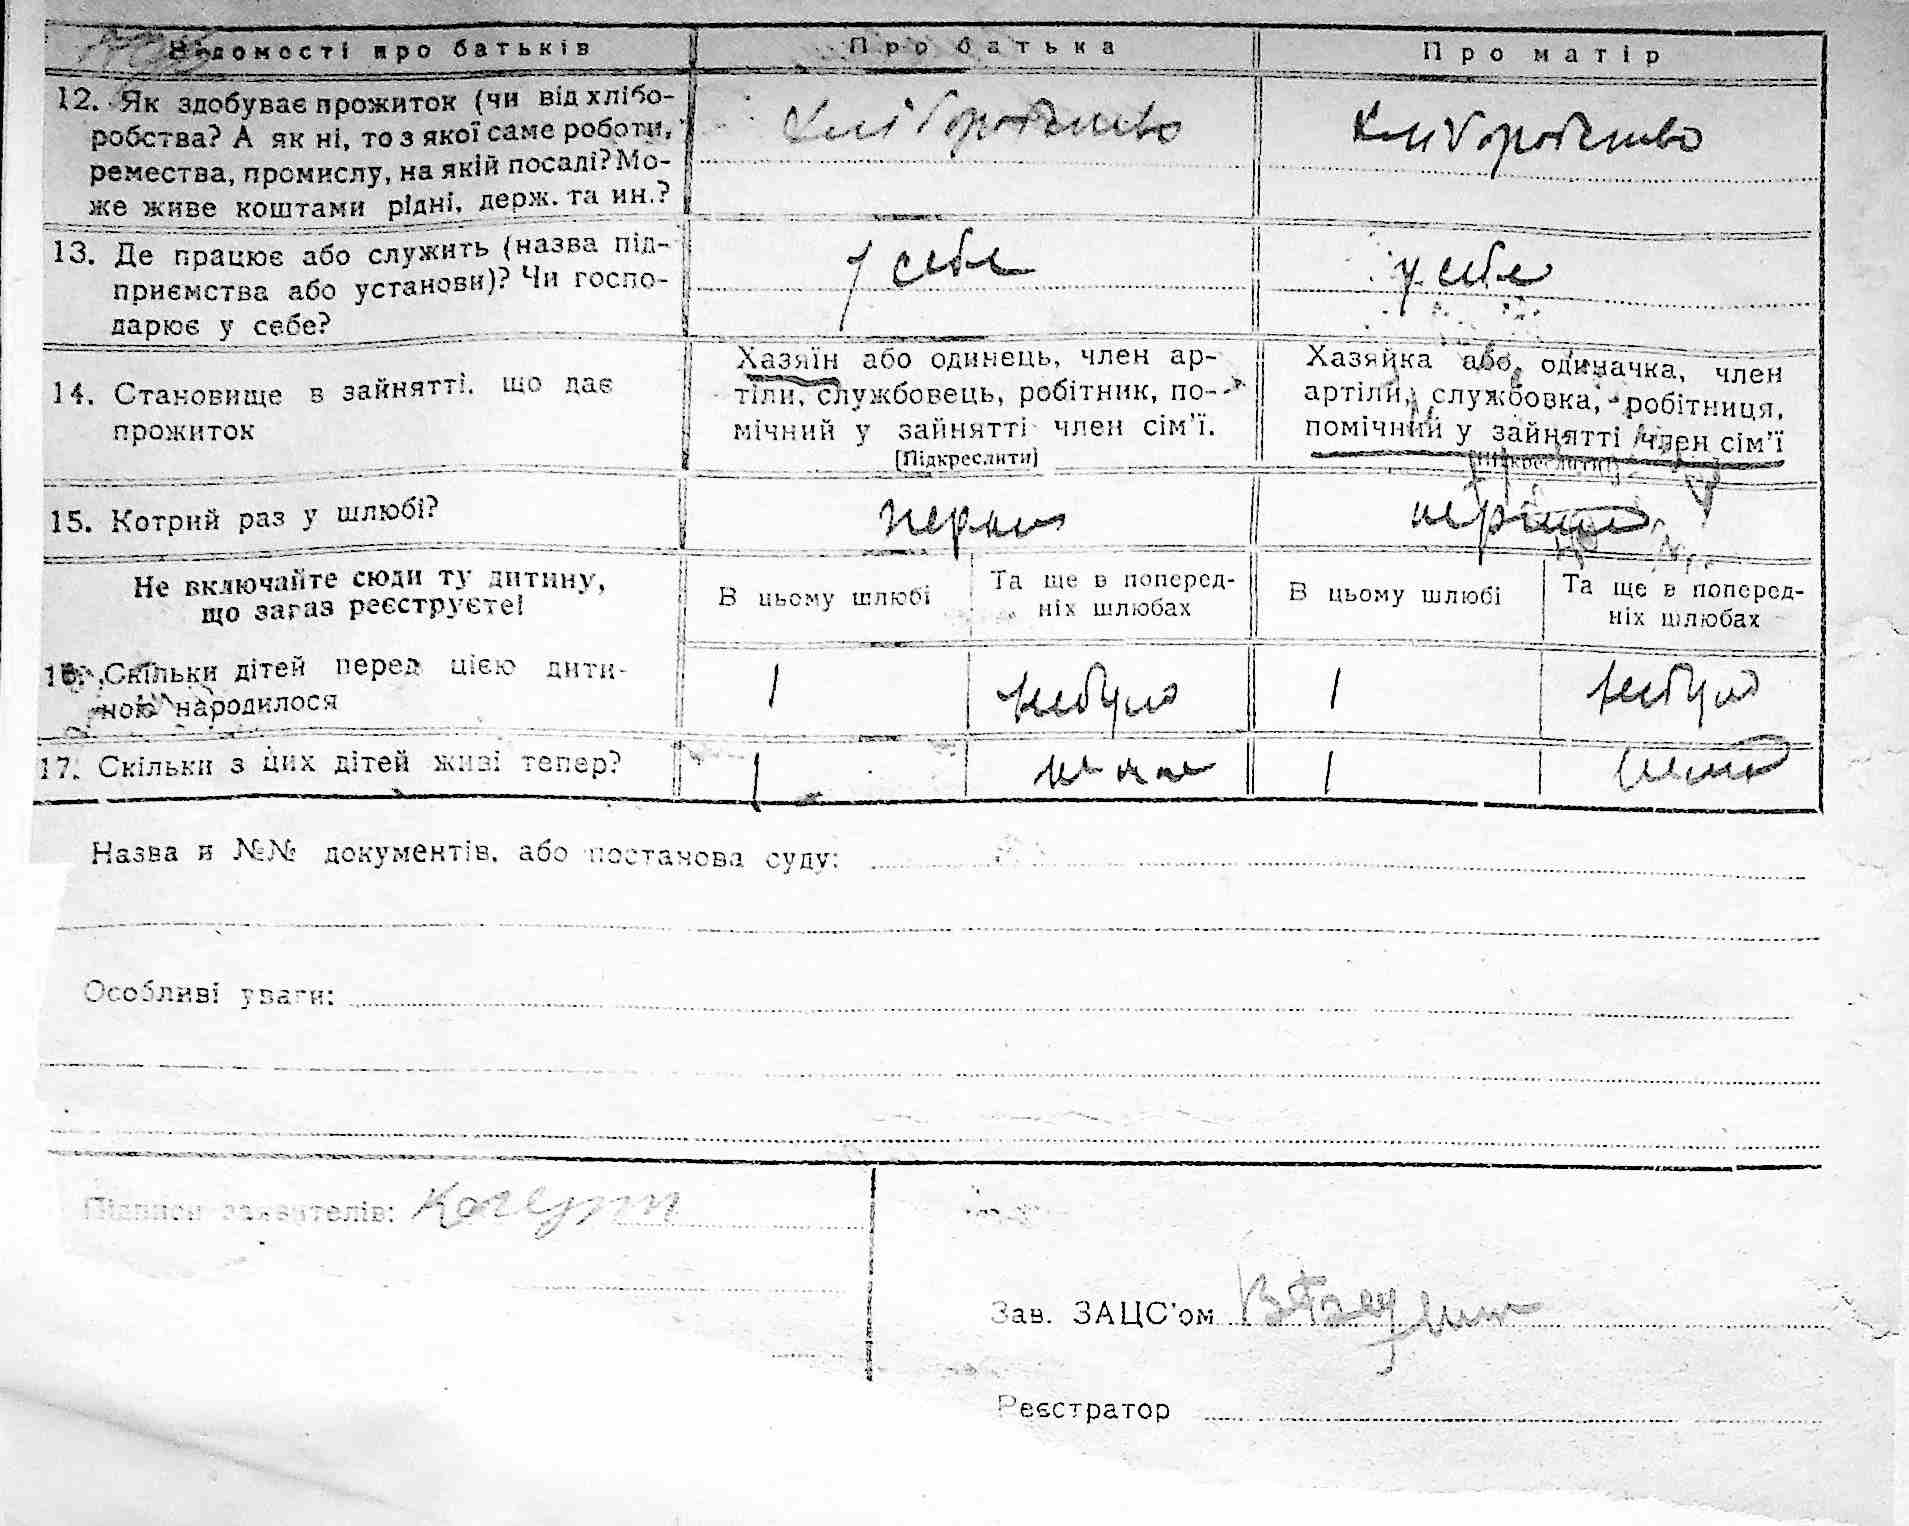 Відомості про батьків
Про батька
Про матір
12. Як здобуває прожиток (чи від хлібо-
робства? А як ні, то з якої саме роботи,
ремества, промислу, на якій посаді? Мо-
же живе коштами рідні, держ. та ин.?
хліборобство
хліборобство
13. Де працює або служить (назва під-
приємства або установи)? Чи госпо-
дарює у себе?
у себе
у себе
14. Становище в зайнятті, що дає
прожиток
Хазяїн або одинець, член ар-
тіли, службовець, робітник, по-
мічний у зайнятті член сім'ї.
(Підкреслити)
Хазяйка або одиначка, член
артіли, службовка, робітниця,
помічний у зайнятті член сім'ї
(Підкреслити)
15. Котрий раз у шлюбі?
Не включайте сюди ту дитину,
що зараз реєструєте!
В цьому шлюбі
Та ще в поперед-
ніх шлюбах
В цьому шлюбі
Та ще в поперед-
ніх шлюбах
16. Скільки дітей перед цією дити-
ною народилося
1
небуло
1
небуло
17. Скільки з цих дітей живі тепер?
1
немає
1
Назва й №№ документів, або постанова суду:
Особливі уваги:
Підписи заявителів:
Зав. ЗАЦС'ом
Реєстратор